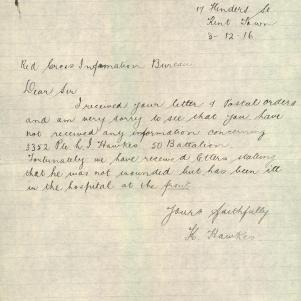 17 Flinders St
Kent Town
3-12-16
Red Cross Information Bureau
Dear Sir
I received your letter & Postal orders
and am very sorry to see that you have
not received any information concerning
3352 Pte L. J. Hawkes 50 Battalion.
Fortunately we have received letters stating
that he was not wounded but has been ill
in the hospital at the front.
Yours Faithfully
H. Hawkes